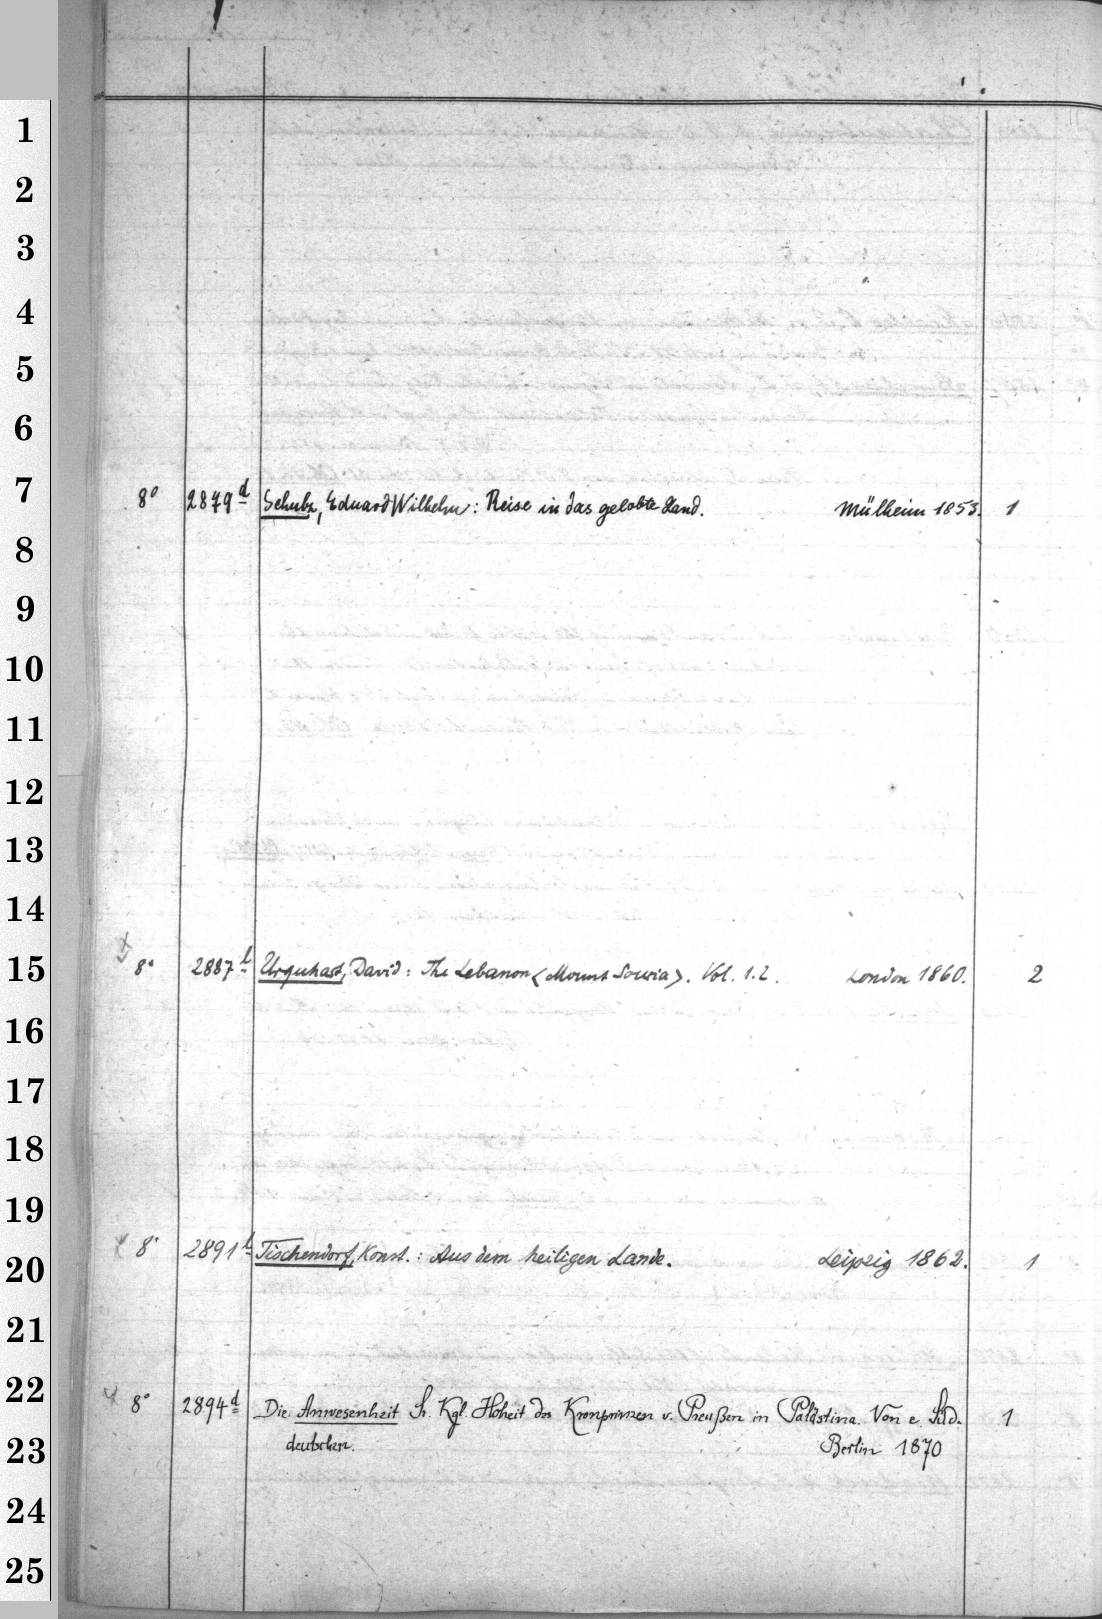 1
2
3
4
5
6
7
8° 2879 d Schulz, Eduard Wilhelm: Reise in das gelobte Land. Mülheim 1853. 1
8
9
10
11
12
13
14
15
8° 2887 Urquhart, David: The Lebanon <Mount Souria>. Vol. 1.2. London 1860. 2
16
17
18
19
8° 2891 Tischendorf, Konst.: Aus dem heiligen Lande. Leipzig 1862. 1
20
21
22
8° 2894 d Die Anwesenheit Sr. Kgl. Hoheit des Kronprinzen v. Preußen in Palästina. Von e. Süd- 1
23
deutschen. Berlin 1870
24
25